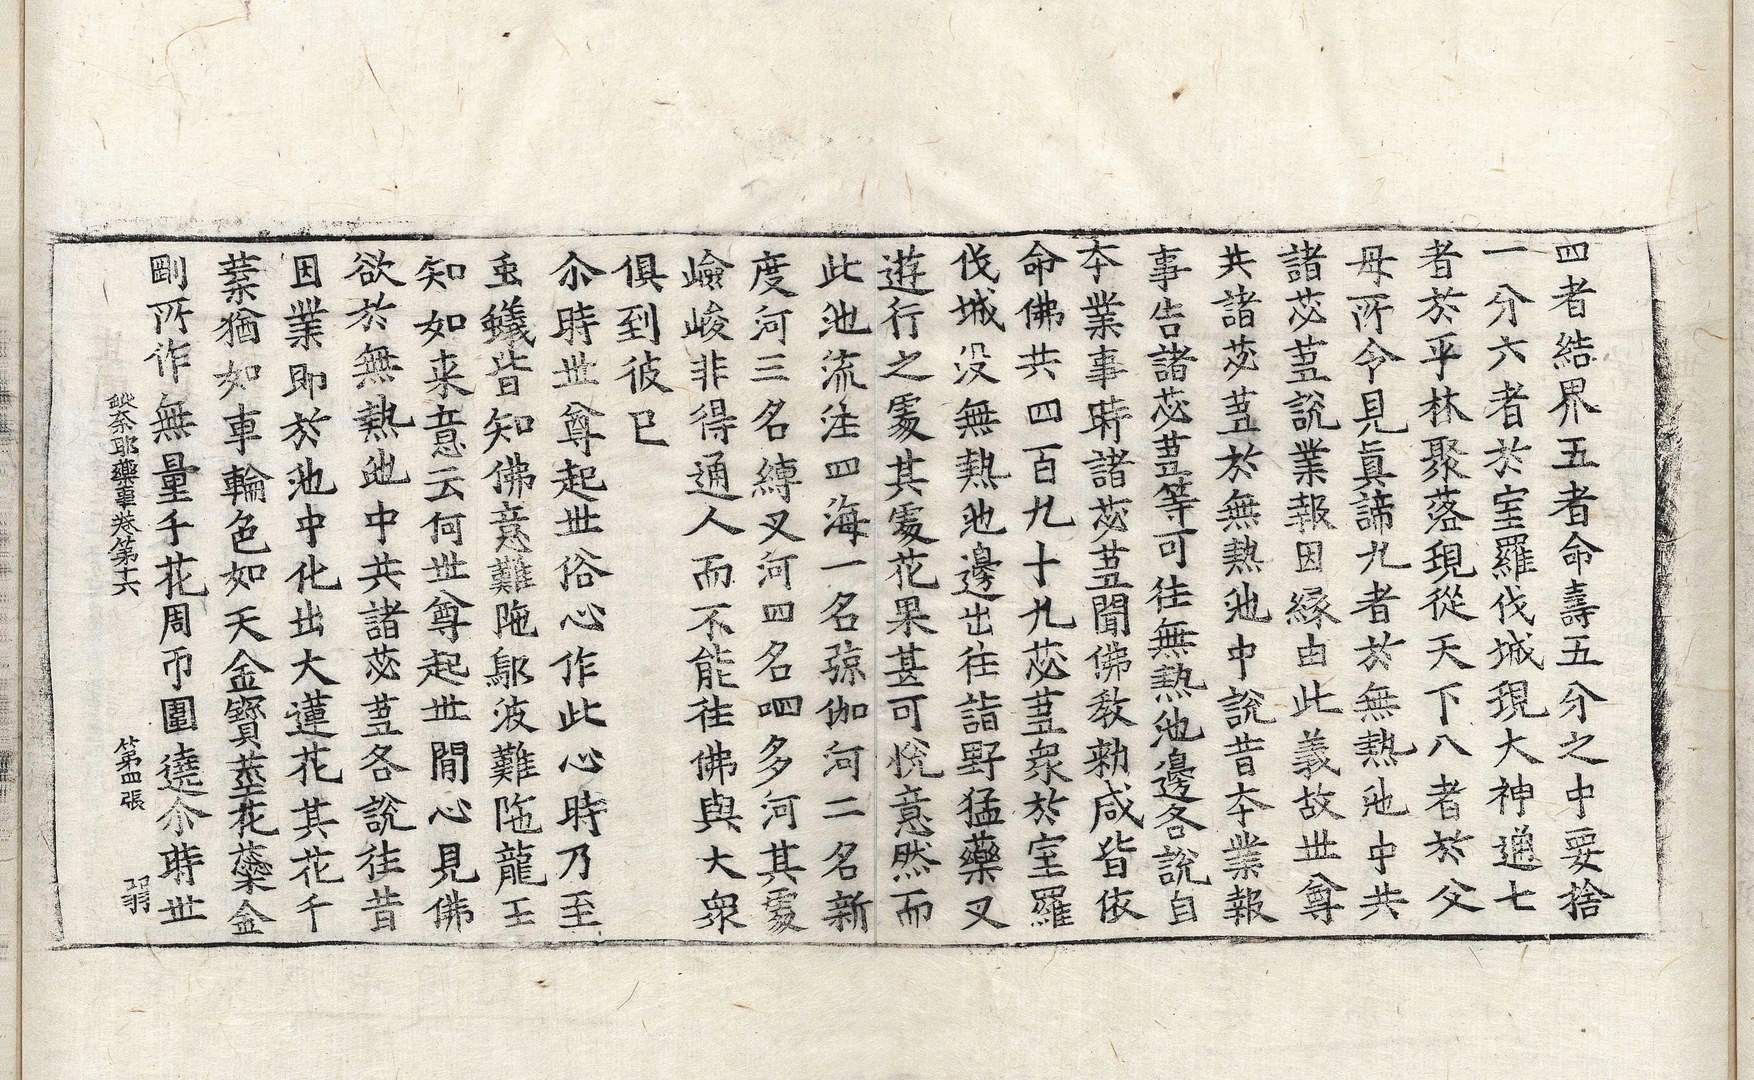 四者結界五者命壽五分之中要捨
一分六者於室羅伐城現大神通七
者於平林聚落現從天下八者於父
母所令見眞諦九者於無熱池中共
諸苾芻說業報因緣由此義故世尊
共諸苾芻於無熱池中說昔本業報
事告諸苾芻等可往無熱池邊各說自
本業事時諸苾芻聞佛教勅咸皆依
命佛共四百九十九苾芻衆於室羅
伐城没無熱池邊出往詣野猛藥叉
遊行之處其處花果甚可悅意然而
此池流注四海一名弶伽河二名新
度河三名縛叉河四名呬多河其處
嶮峻非得通人而不能往佛與大衆
俱到彼已
尒時世尊起世俗心作此心時乃至
䖝蟻皆知佛意難陁鄔波難陁龍王
知如来意云何世尊起世間心見佛
欲於無熱池中共諸苾芻各說往昔
因業即於池中化出大蓮花其花千
葉猶如車輪色如天金寶莖花蘂金
剛所作無量千花周帀圍遶尒時世
毗奈耶藥事卷第十六 第四張 弱